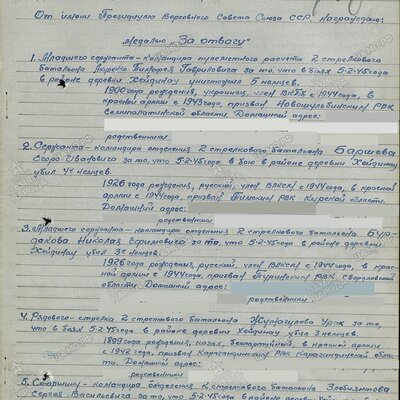 От имени Президиума Верховного Совета Союза ССР награждаю:
Медалью "За отвагу"
1. Младшего сержанта - командира пулеметного расчета 2 стрелкового
батальона Тимофея Гавриловича за то, что в боях 5-2-45 года
в районе деревни Хейдинау уничтожил 5 немцев.
1900 года рождения, украинец, член ВКПБ с 1944 года, в
красной армии с 1943 года, призван РВК
Семипалатинской области Домашний адрес:
родственники
2. Сержанта - командира отделения 2 стрелкового батальона Барщева
Егора Ивановича за то, что 5-2-45 года, в бою в районе деревни Хейдинау
убил 4х немцев.
1926 года рождения, русский, член ВЛКСМ с 1944 года, в красной
армии с 1944 года, призван Тимским РВК Курской области.
Домашний адрес:
родственники
3. Младшего сержанта - командира отделения 2 стрелкового батальона Бур-
дакова Николая Ефимовича за то, что 5-2-45 года в районе деревни
Хейдинау убил 3х немцев.
1926 года рождения русский, член ВЛКСМ с 1944 года, в крас-
ной армии с 1944 года, призван Туринским РВК, Свердловской
области Домашний адрес:
родственники
4. Рядового - стрелка 2 стрелкового батальона Жумагулова Урак за то,
что в боях 5-2-45 года в районе деревни Хейдинау убил 3 немцев.
1899 года рождения, казах, беспартийный, в красной армии
с 1942 года, призван Карагандинским РВК Карагандинской облас-
ти. Домашний адрес:
родственники
5. Старшину - командира отделения 2 стрелкового батальона
Сергея Васильевича за то, что 5-2-45 года в районе деревни